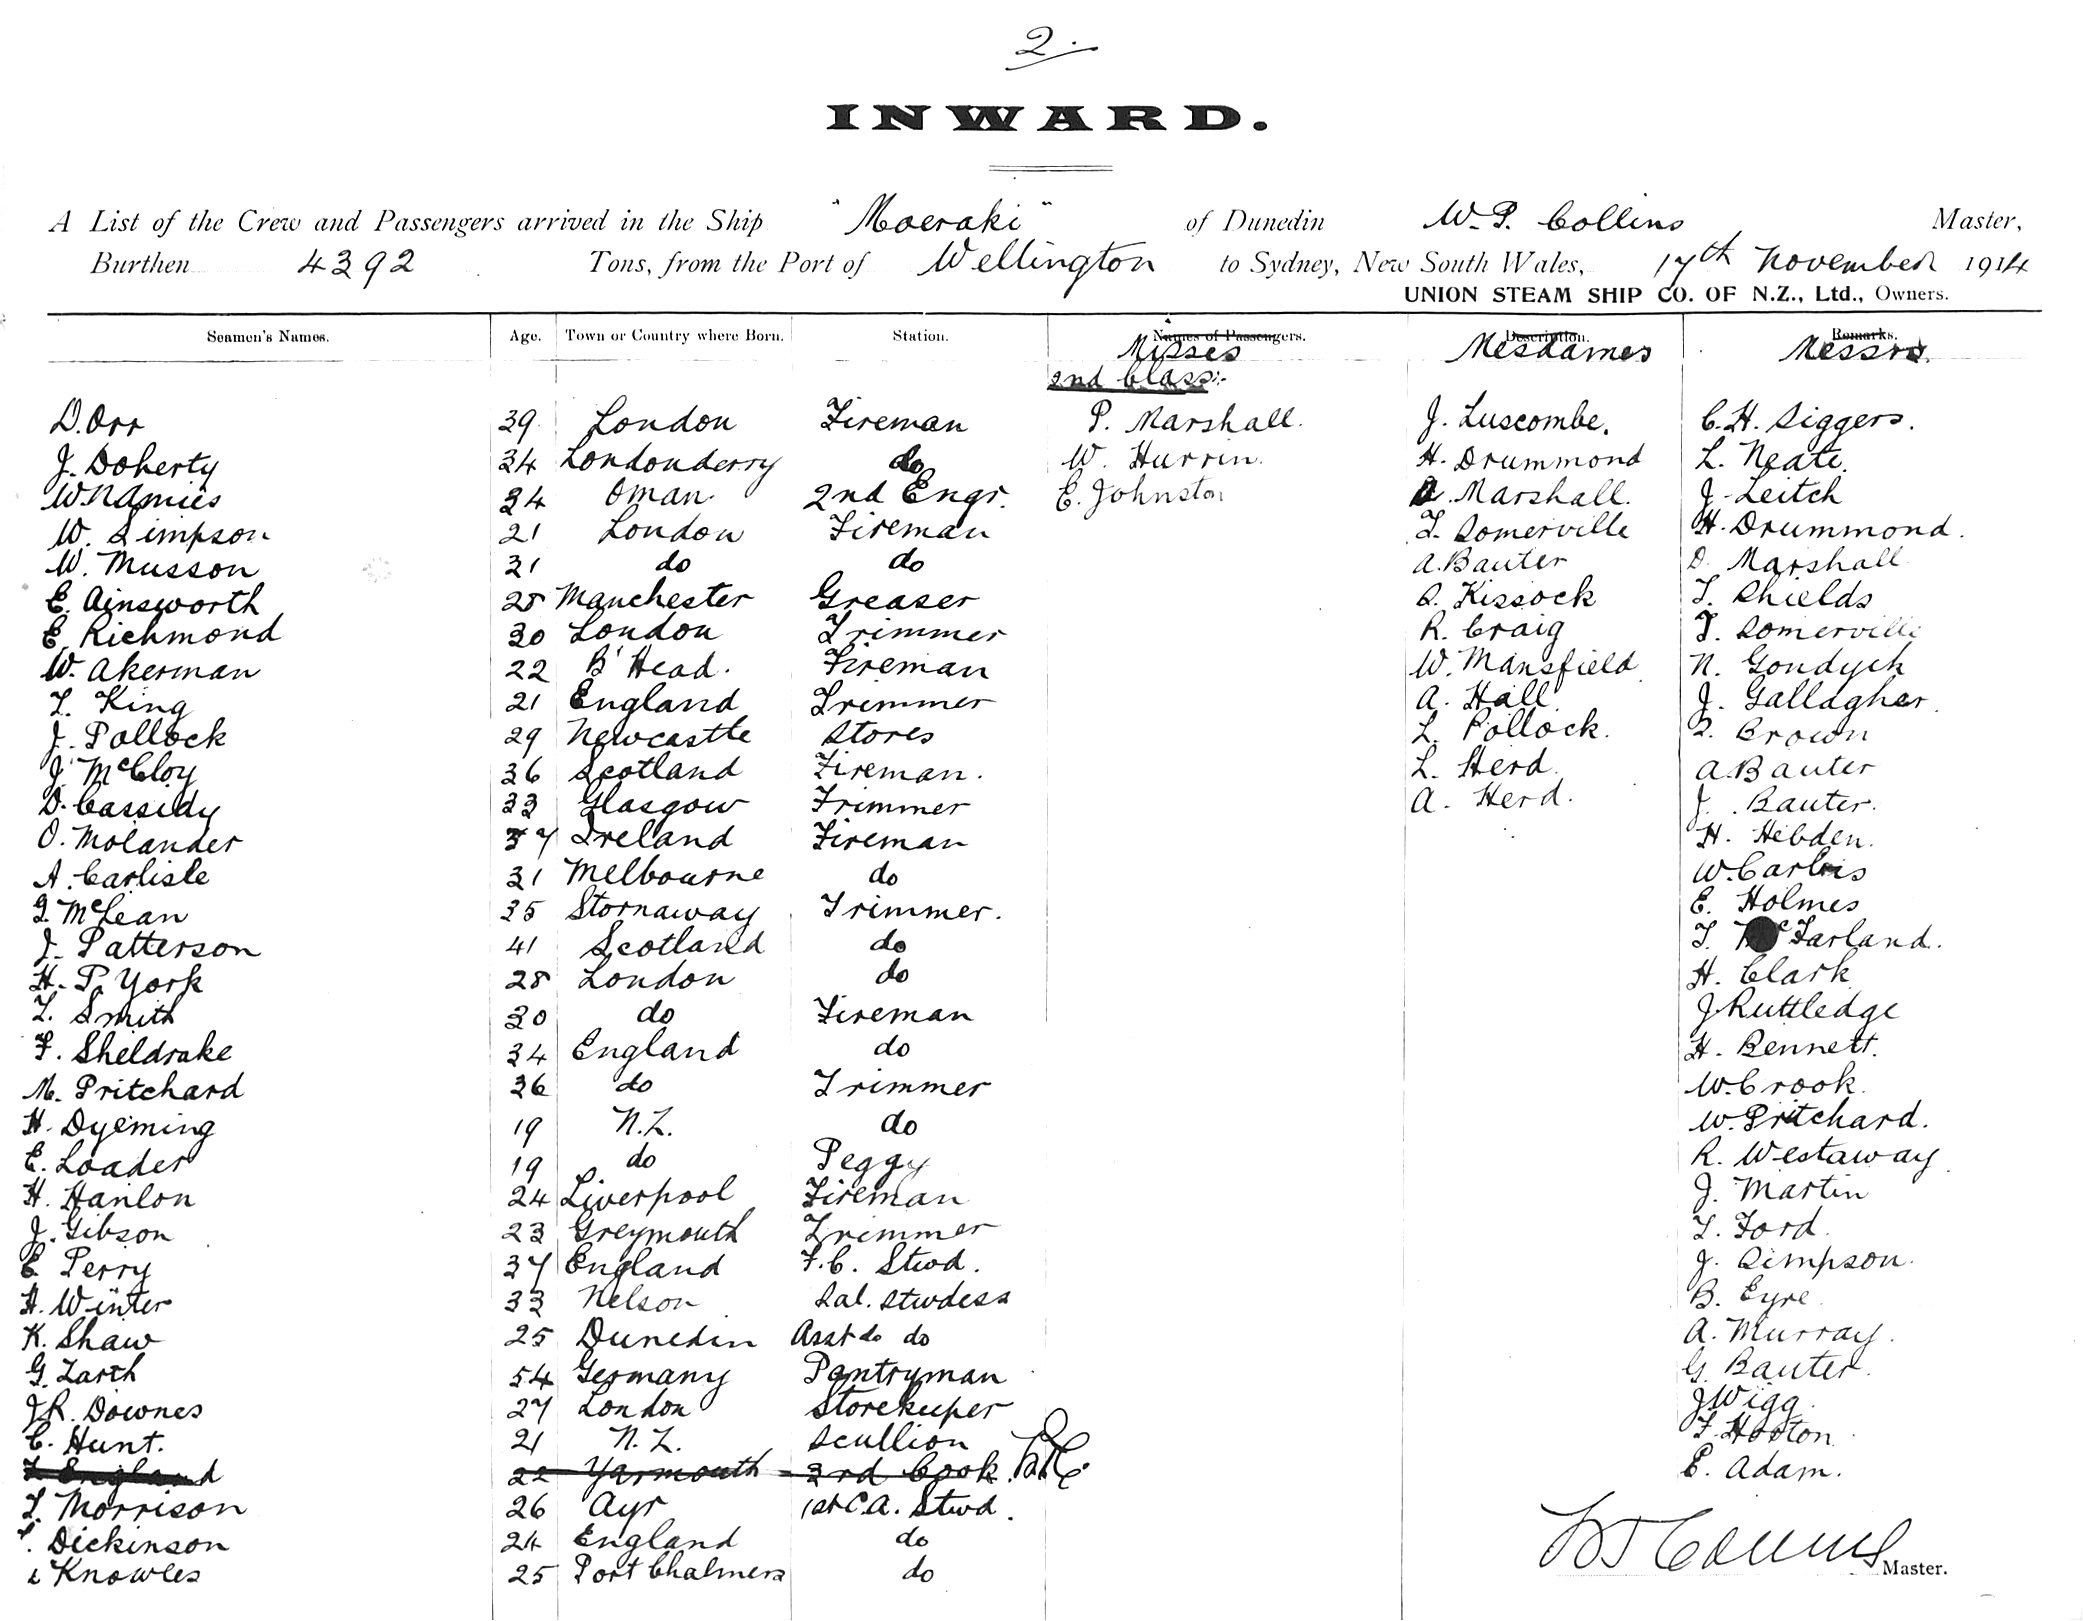 2.
INWARD.
A List of the Crew and Passengers arrived in the Ship "Moeraki" of Dunedin W. P. Collins Master,
Burthen 4392 Tons, from the Port of Wellington to Sydney, New South Wales, 17th November 1914
UNION STEAM SHIP CO. OF N.Z., Ltd., Owners.
Seamen's Names. Age. Town or Country where Born. Station. Names of Passengers. Description. Remarks.
Misses Mesdames Messrs.
2nd Class:-
D. Orr 39 London Fireman P. Marshall. J. Luscombe. C. H. Siggers.
J. Doherty 34 Londonderry do W. Hurrin. H. Drummond L. Neate.
34 Oman 2nd Engr. E. Johnston Marshall. J. Leitch
W. Simpson 21 London Fireman T. Somerville H. Drummond.
W. Musson 31 do do A. Bauter D. Marshall
E. Ainsworth 28 Manchester Greaser A. Kissock T. Shields
E. Richmond 30 London Trimmer R. Craig T. Somerville
W. Akerman 22 B'Head. Fireman W. Mansfield N. Gondych
T. King 21 England Trimmer A. Hall. J. Gallagher.
J. Pollock 29 Newcastle Stores L. Pollock. Brown
J. McCloy 36 Scotland Fireman. L. Herd. A. Bauter
D. Cassidy 33 Glasgow Trimmer A. Herd. J. Bauter.
O. Molander 37 Ireland Fireman H. Hebden.
A. Carlisle 31 Melbourne do W.
McLean 35 Stornaway Trimmer. E. Holmes
J. Patterson 41 Scotland do T. McFarland.
H. P. York 28 London do H. Clark
T. Smith 30 do Fireman J Ruttledge
F. Sheldrake 34 England do H. Bennett.
M. Pritchard 36 do Trimmer W. Crook.
H. Dyeming 19 N.Z. do W. Pritchard.
E. Loader 19 do Peggy R. Westaway
H. Hanlon 24 Liverpool Fireman J. Martin
J. Gibson 23 Greymouth Trimmer T. Ford.
E. Perry 37 England F.C. Stwd. J. Simpson.
H. Winter 33 Nelson Sal. Stwdess B. Eyre.
K. Shaw 25 Dunedin Asst do do A. Murray.
G. Zarth 54 Germany Pantryman G. Bauter.
J R. Downes 27 London Storekeeper J Wigg.
C. Hunt. 21 N. Z. Scullion F. Hooton
England 22 Yarmouth 3rd Cook. E. Adam.
T. Morrison 26 Ayr 1st C.A. Stwd.
Dickinson 24 England do
Knowles 25 Port Chalmers do
W P Collins Master.